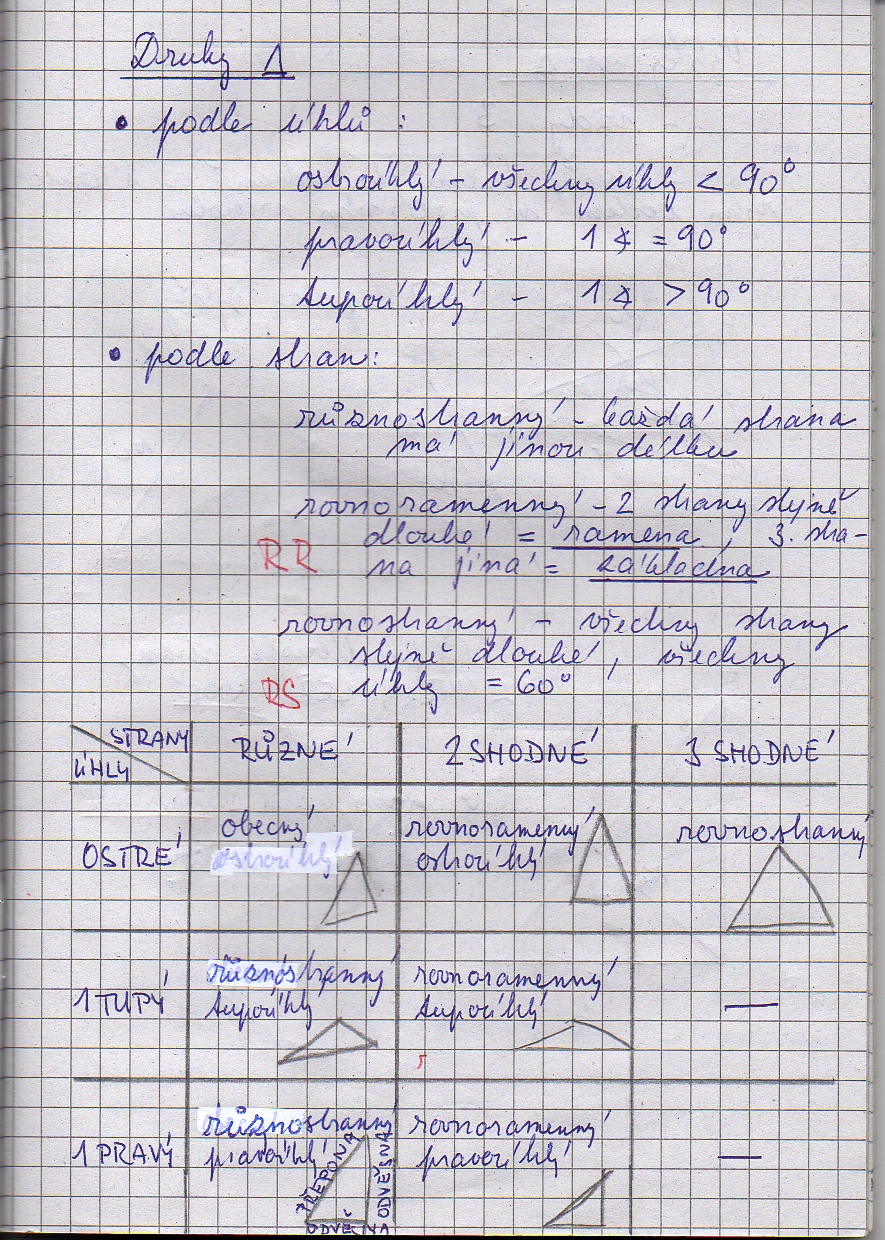 Druhy Δ
• podle úhlů :
ostroúhlý – všechny úhly < 90°
pravoúhlý – 1 ∢ = 90°
tupoúhlý – 1 ∢ > 90°
• podle stran:
různostranný – každá strana
má jinou délku
rovnoramenný – 2 strany stejně
dlouhé = ramena, 3. stra-
RR na jiná = základna
rovnostranný – všechny strany
stejně dlouhé, všechny
RS úhly = 60°
STRANY RŮZNÉ 2 SHODNÉ 3 SHODNÉ
ÚHLY
obecný rovnoramenný rovnostranný
OSTRÉ ostroúhlý ostroúhlý
různostranný rovnoramenný
1 TUPÝ tupoúhlý tupoúhlý —
různostranný rovnoramenný
1 PRAVÝ pravoúhlý pravoúhlý —
PŘEPONA ODVĚSNA
ODVĚSNA